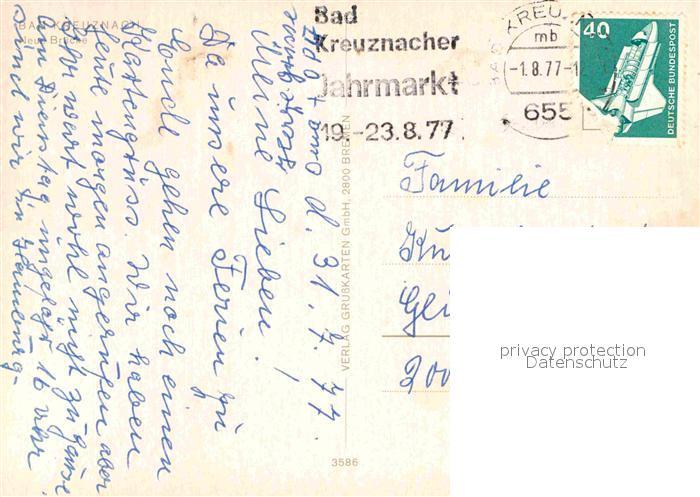 BAD KREUZNACH
Neue Brücke
Bad
Kreuznacher
Jahrmarkt
19.-23.8.77
BAD KREUZ
mb
-1.8.77-1
655
40
DEUTSCHE BUNDESPOST
d. 31.7.77.
Meine Lieben!
Da unsere Ferien zu
Ende gehen noch einen
Kartengruss. Wir haben
heute morgen angerufen aber
Ihr wart wohl nicht zu Hause.
Am Dienstag ungefähr 16 Uhr
sind wir in Hamburg.
VERLAG GRUßKARTEN GmbH, 2800 BREMEN
3586
Familie
Ku
Gei
200
privacy protection
Datenschutz